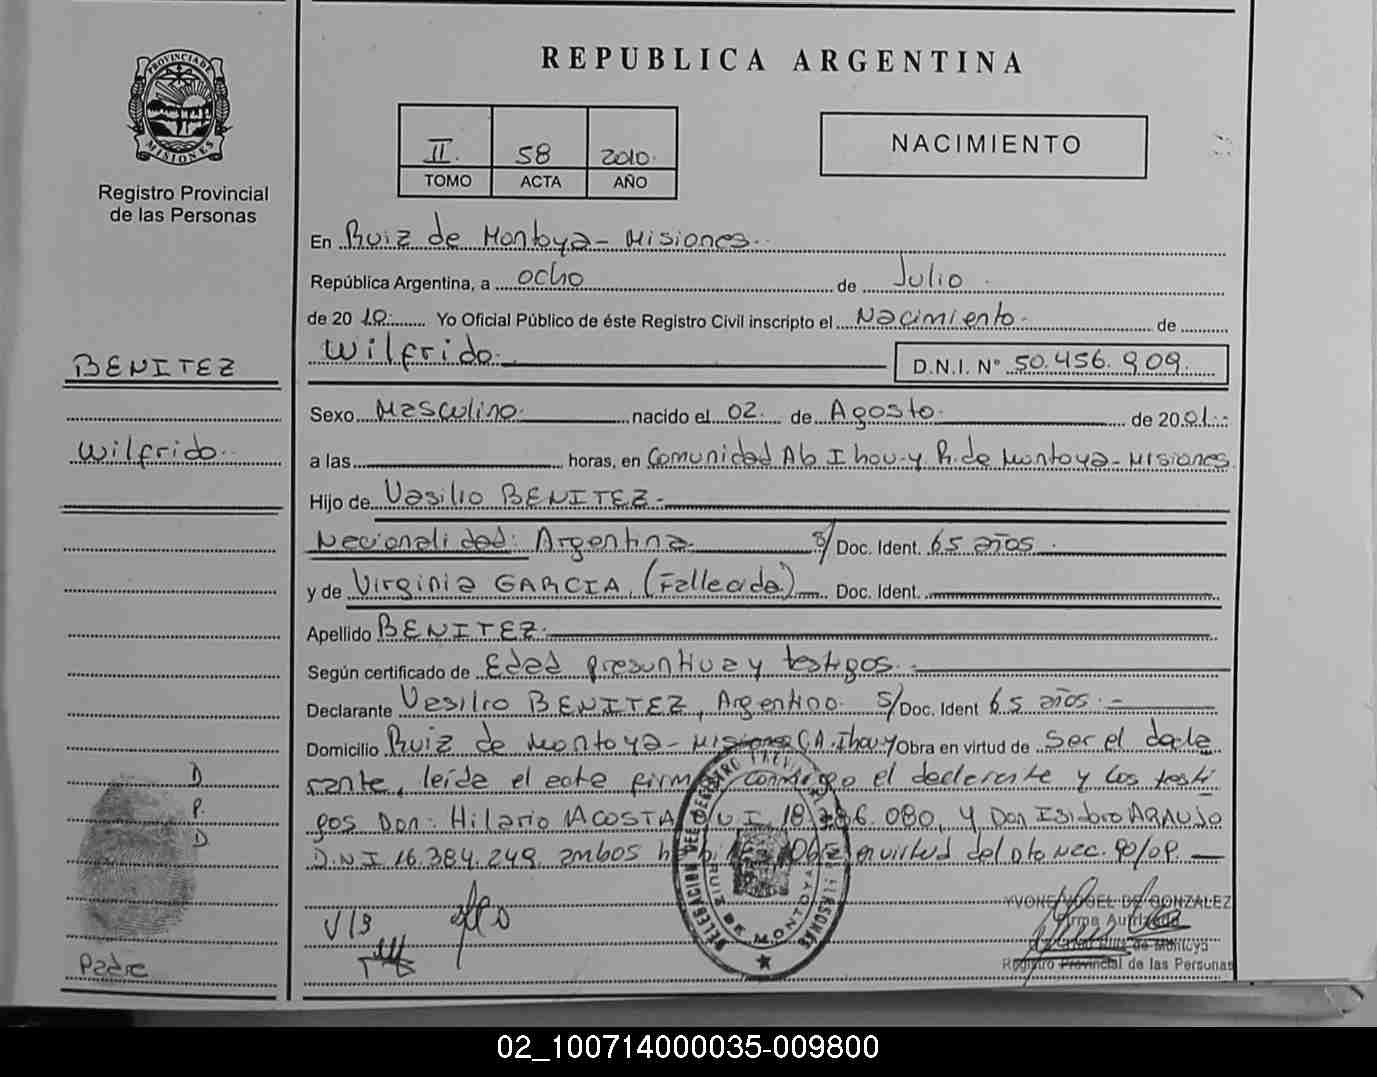 PROVINCIA DE MISIONES
Registro Provincial
de las Personas
REPUBLICA ARGENTINA
II. 58 2010.
TOMO ACTA AÑO
NACIMIENTO
En Ruiz de Montoya - Misiones.
República Argentina, a ocho de Julio
de 20 10. Yo Oficial Público de éste Registro Civil inscripto el Nacimiento. de
Wilfrido. D.N.I. Nº 50.456.909.
BENITEZ
Sexo Masculino. nacido el 02. de Agosto. de 2001.
Wilfrido.
a las horas, en Comunidad Ab. Ihou-y R. de Montoya - Misiones.
Hijo de Vasilio BENITEZ.
Nacionalidad: Argentina. S/ Doc. Ident. 65 años.
y de Virginia GARCIA, (Fallecida) Doc. Ident.
Apellido BENITEZ.
Según certificado de Edad presuntiva y testigos.
Declarante Vasilio BENITEZ, Argentino. S/Doc. Ident 65 años.
Domicilio Ruiz de Montoya - Misiones C.A. Ihou-y Obra en virtud de Ser el decla
rante, leida el acta firma conmigo el declarante y los testi
gos Don: Hilario ACOSTA D.N.I 18.786.080, y Don Isidro ARAUJO
D.N.I 16.384.249. ambos Obra en virtud del Dto Nac. 90/09.
D
P.
D
Padre
V I B
DELEGACION DEL REGISTRO PROVINCIAL DE LAS PERSONAS
RUIZ DE MONTOYA
YVONE VOGEL DE GONZALEZ
Firma Autorizada
Ruiz de Montoya
Registro Provincial de las Personas
02_100714000035-009800